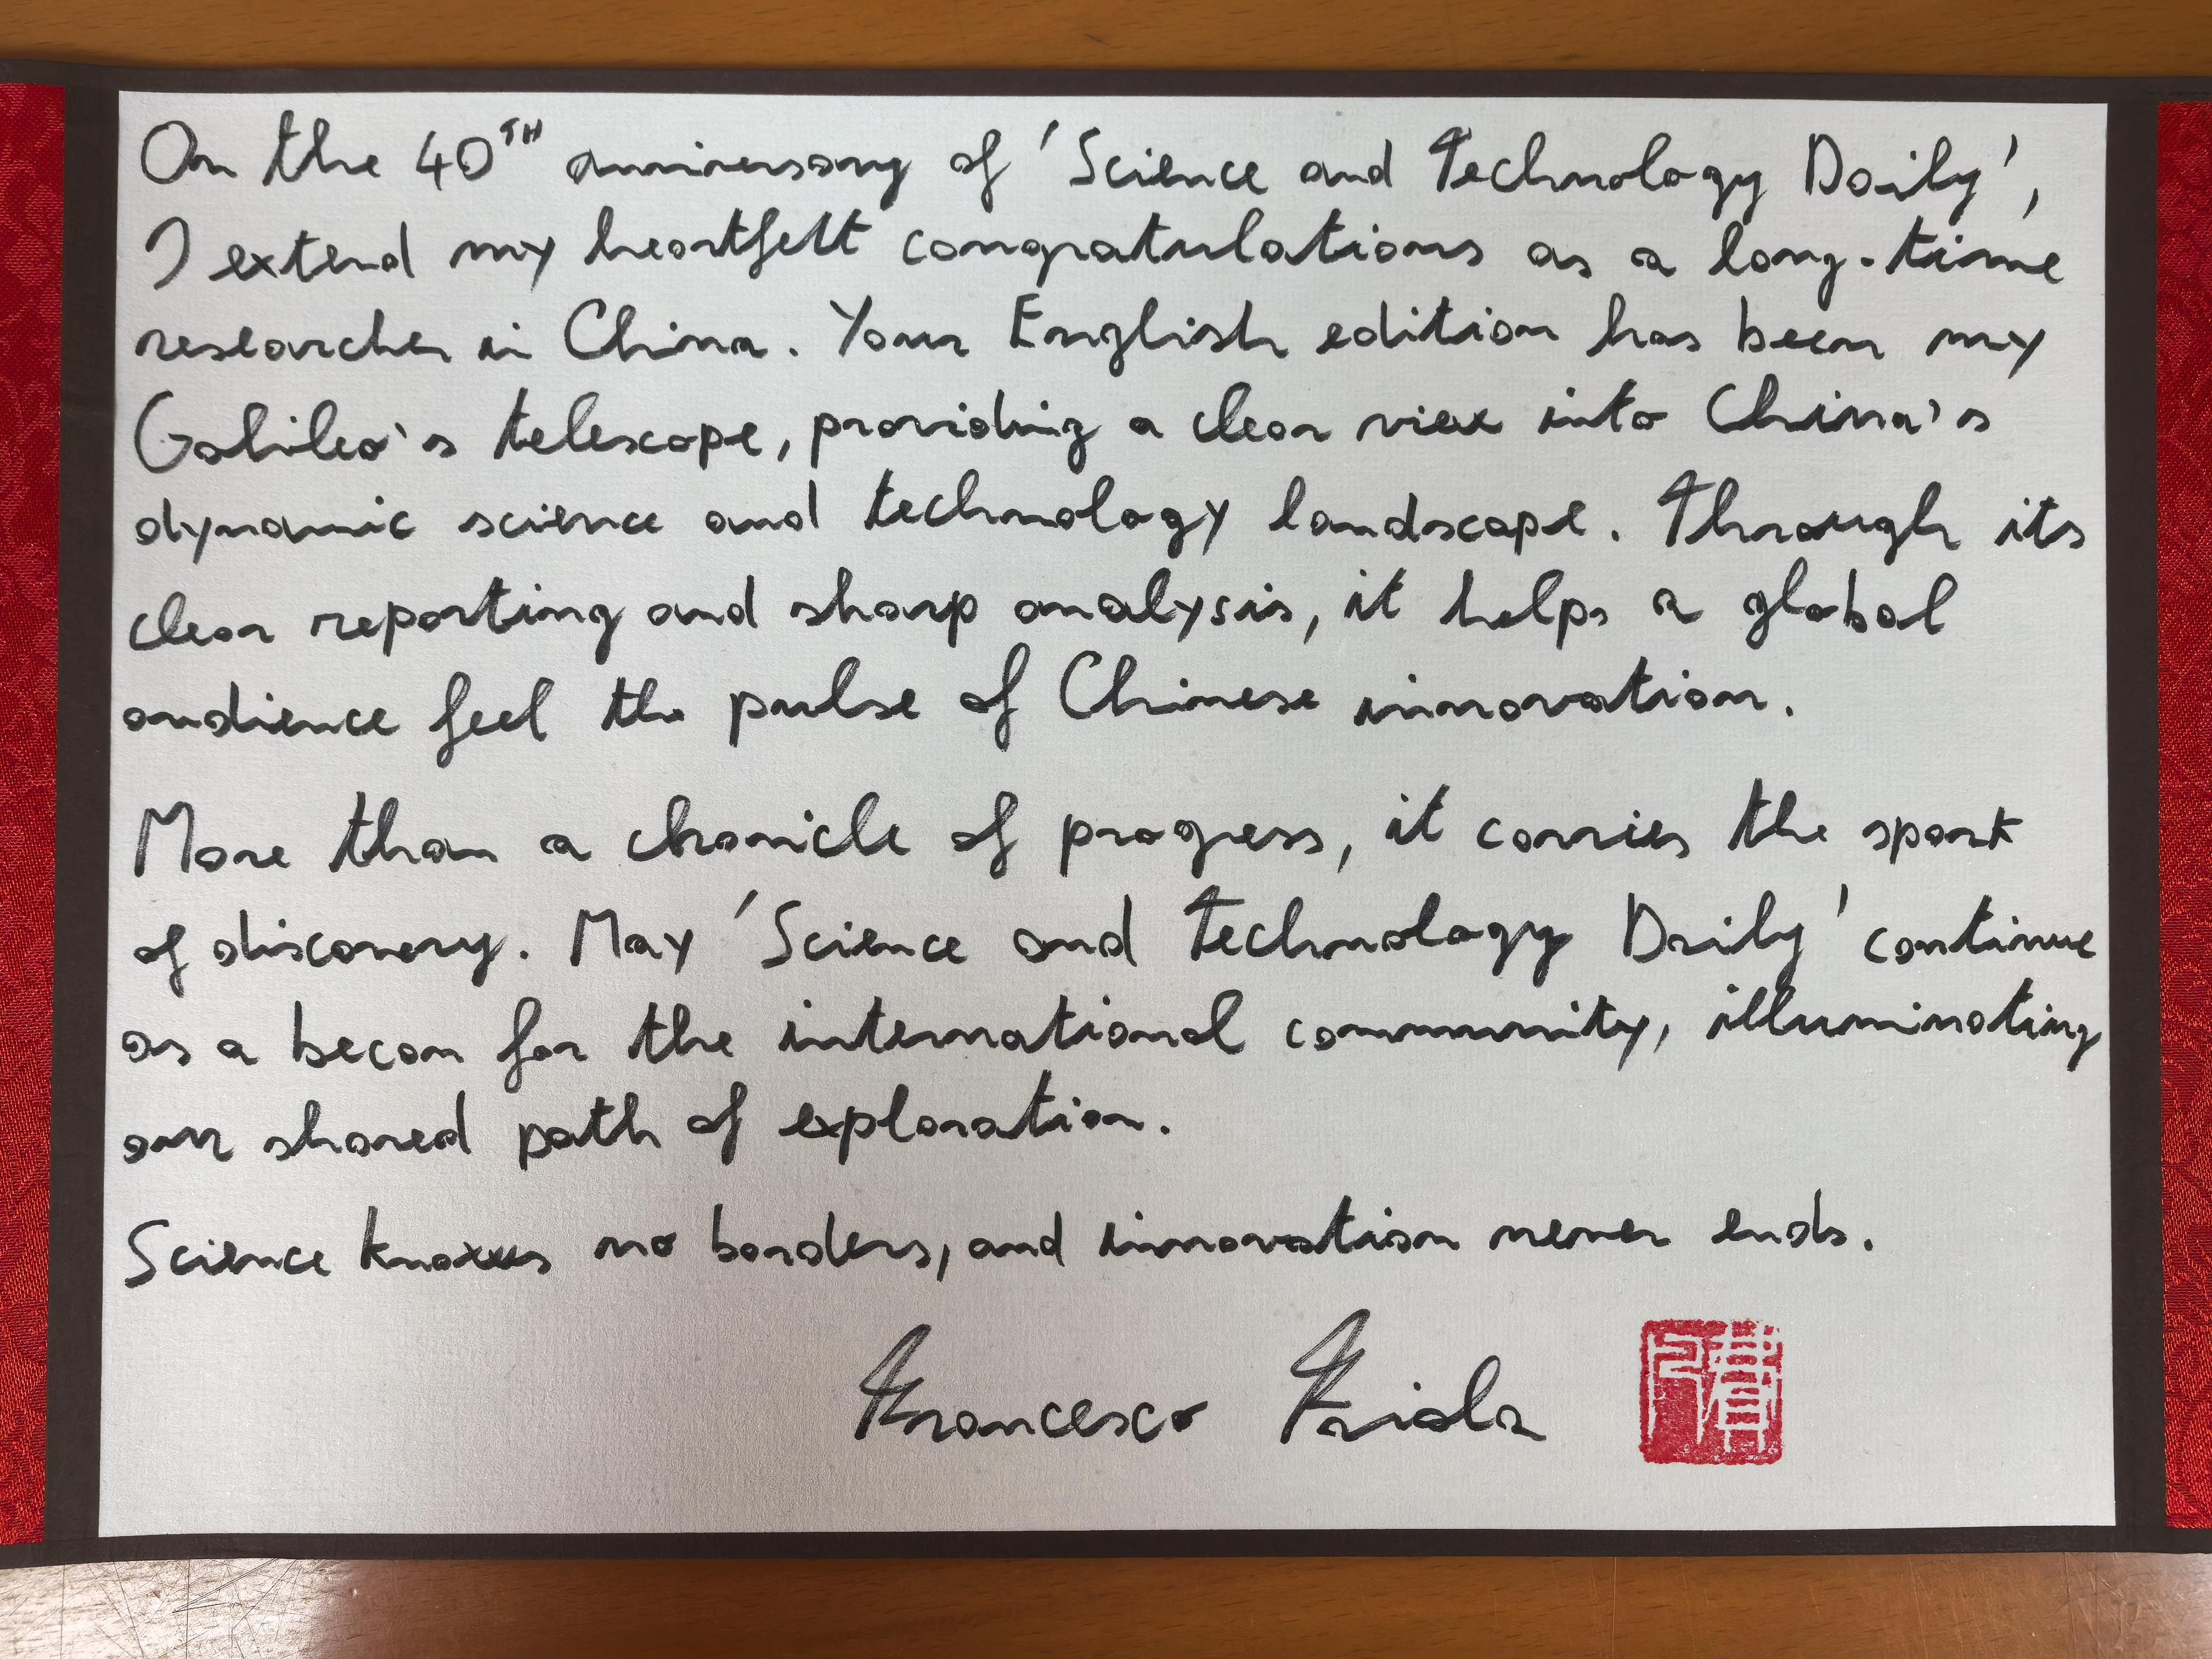 On the 40TH anniversary of 'Science and Technology Daily',
I extend my heartfelt congratulations as a long-time
researcher in China. Your English edition has been my
Galileo's telescope, providing a clear view into China's
dynamic science and technology landscape. Through its
clear reporting and sharp analysis, it helps a global
audience feel the pulse of Chinese innovation.
More than a chronicle of progress, it carries the spark
of discovery. May 'Science and Technology Daily' continue
as a becon for the international community, illuminating
our shared path of exploration.
Science knows no borders, and innovation never ends.
Francesco Faiola